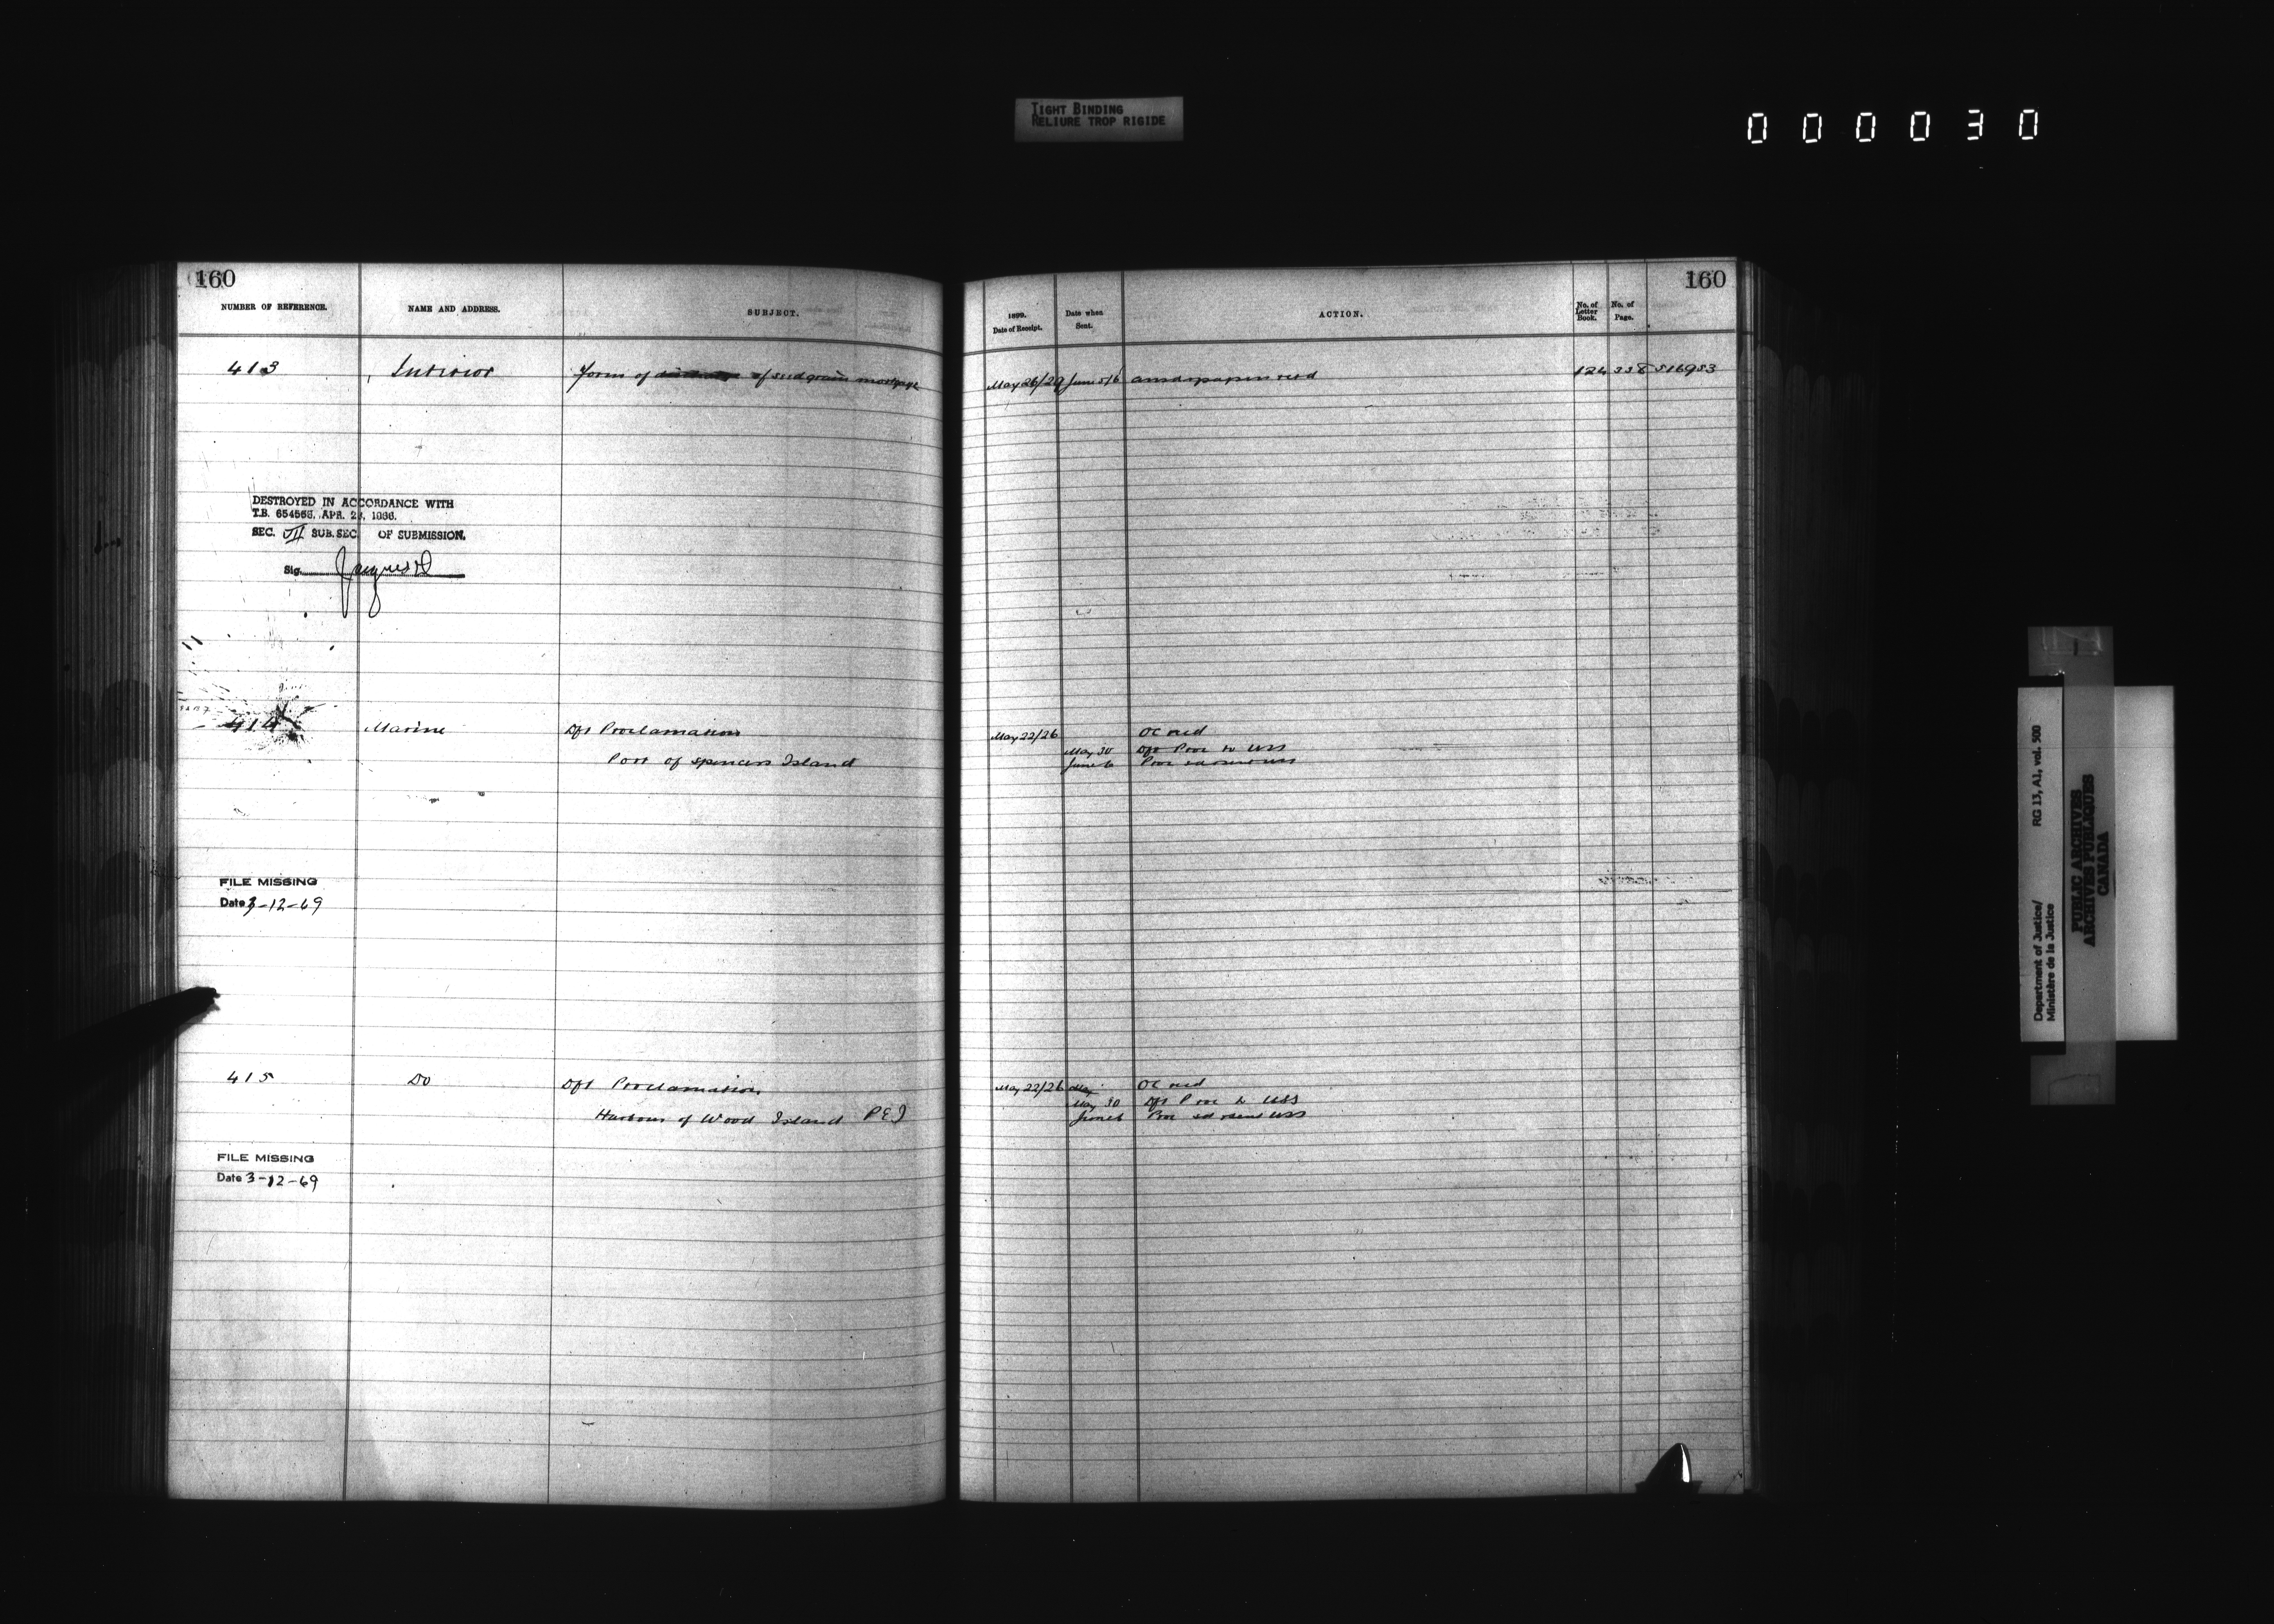 TIGHT BINDING
RELIURE TROP RIGIDE
000030
160
NUMBER OF REFERENCE.
NAME AND ADDRESS.
SUBJECT.
413
Interior
Form of of seed grain mortgage
DESTROYED IN ACCORDANCE WITH
T.B. 654566, APR. 1966.
SEC. VII SUB. SEC. OF SUBMISSION.
Sig.
414
Marine
Dft Proclamation
Port of Spencers Island
FILE MISSING
Date 3-12-69
415
Do
Dft Proclamation
Harbour of Wood Island PEI
FILE MISSING
Date 3-12-69
160
1899.
Date of Receipt.
Date when
Sent.
ACTION.
No. of
Letter
Book.
No. of
Page.
May 26/29 June 5/6 ansd papers retd 124 338 516953
May 22/26 OC recd
May 30 Dft Proc to USS
June 6 Proc USS
May 22/26 May OC recd
May 30 Dft Proc to USS
June 6 Proc USS
Department of Justice/
Ministère de la Justice
RG 13, A1, vol. 500
PUBLIC ARCHIVES
ARCHIVES PUBLIQUES
CANADA